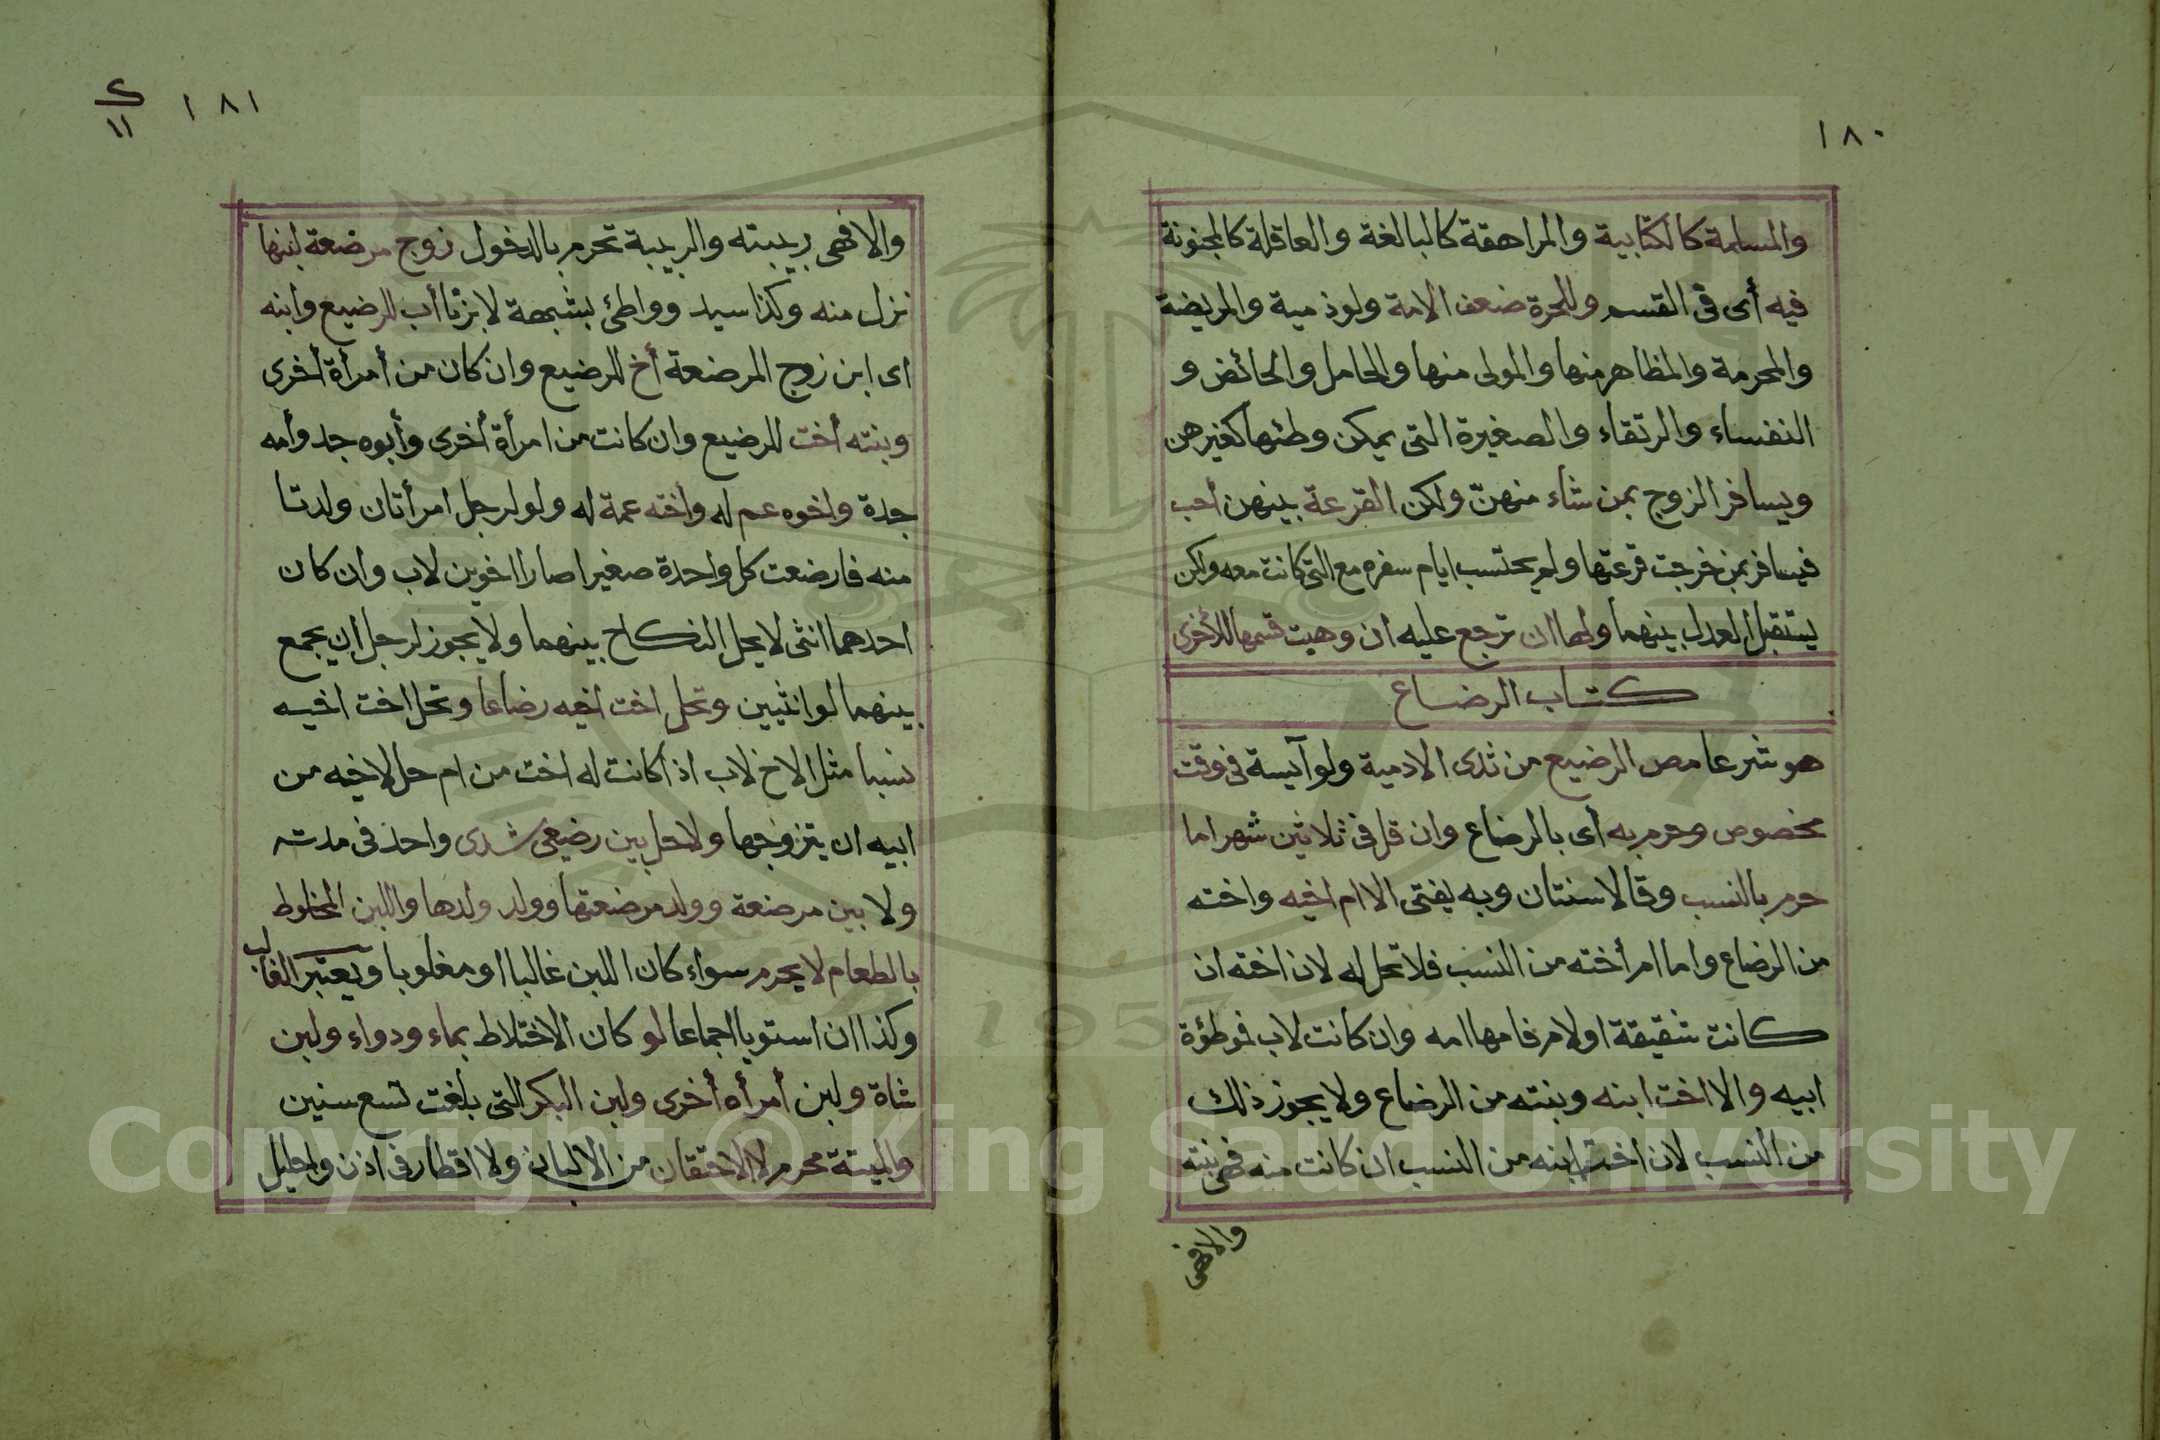 ١٨٠
والمسلمة كالكتابية والمراهقة كالبالغة والعاقلة كالمجنونة
فيه أى فى القسم وللحرة ضعف الامة ولو ذمية والمريضة
والمحرمة والمظاهر منها والمولى منها والحامل والحائض و
النفساء والرتقاء والصغيرة التى يمكن وطئها كغيرهن
ويسافر الزوج بمن شاء منهنّ ولكن القرعة بينهن أحب
فيسافر بمن خرجت قرعتها ولم يحتسب ايام سفره مع التى كانت معه ولكن
يستقبل العدل بينهما ولها ان ترجع عليه ان وهبت قسمها للأخرى
كتاب الرضاع
هو شرعا مص الرضيع من ثدى الادمية ولو آيسة فى وقت
مخصوص وحرم به أى بالرضاع وان قل فى ثلاثين شهرا ما
حرم بالنسب وقالا سنتان وبه يفتى الا ام اخيه واخته
من الرضاع واما ام أخته من النسب فلا تحل له لان اخته ان
كانت شقيقة او لام فامها امه وان كانت لاب فموطؤة
ابيه والا اخت ابنه وبنته من الرضاع ولا يجوز ذلك
من النسب لان اخت ابنه من النسب ان كانت منه فهى بنته
والا فهى
١٨١
ع
١١
والا فهى ربيبته والربيبة تحرم بالدخول زوج مرضعة لبنها
نزل منه وكذا سيد وواطئ بشبهة لا بزنا أب للرضيع وابنه
اى ابن زوج المرضعة أخ للرضيع وان كان من أمرأة أخرى
وبنته أخت للرضيع وان كانت من امرأة أخرى وأبوه جد وأمه
جدة واخوه عم له واخته عمة له ولو لرجل امرأتان ولدتا
منه فارضعت كل واحدة صغيرا صارا اخوين لاب وان كان
احدهما انثى لا يحل النكاح بينهما ولا يجوز لرجل ان يجمع
بينهما لو انثيين وتحل اخت اخيه رضاعا وتحل اخت اخيه
نسبا مثل الاخ لاب اذا كانت له اخت من ام حل لاخيه من
ابيه ان يتزوجها ولا حل بين رضيعى ثدى واحد فى مدته
ولا بين مرضعة وولد مرضعتها وولد ولدها واللبن المخلوط
بالطعام لا يحرم سواء كان اللبن غالبا او مغلوبا ويعتبر الغالب
وكذا ان استويا اجماعا لو كان الاختلاط بماء ودواء ولبن
شاة ولبن أمرأه أخرى ولبن البكر التى بلغت تسع سنين
والميتة محرم لا الاحتقان من الالبان ولا اقطار فى اذن واحليل
Copyright © King Saud University
1957